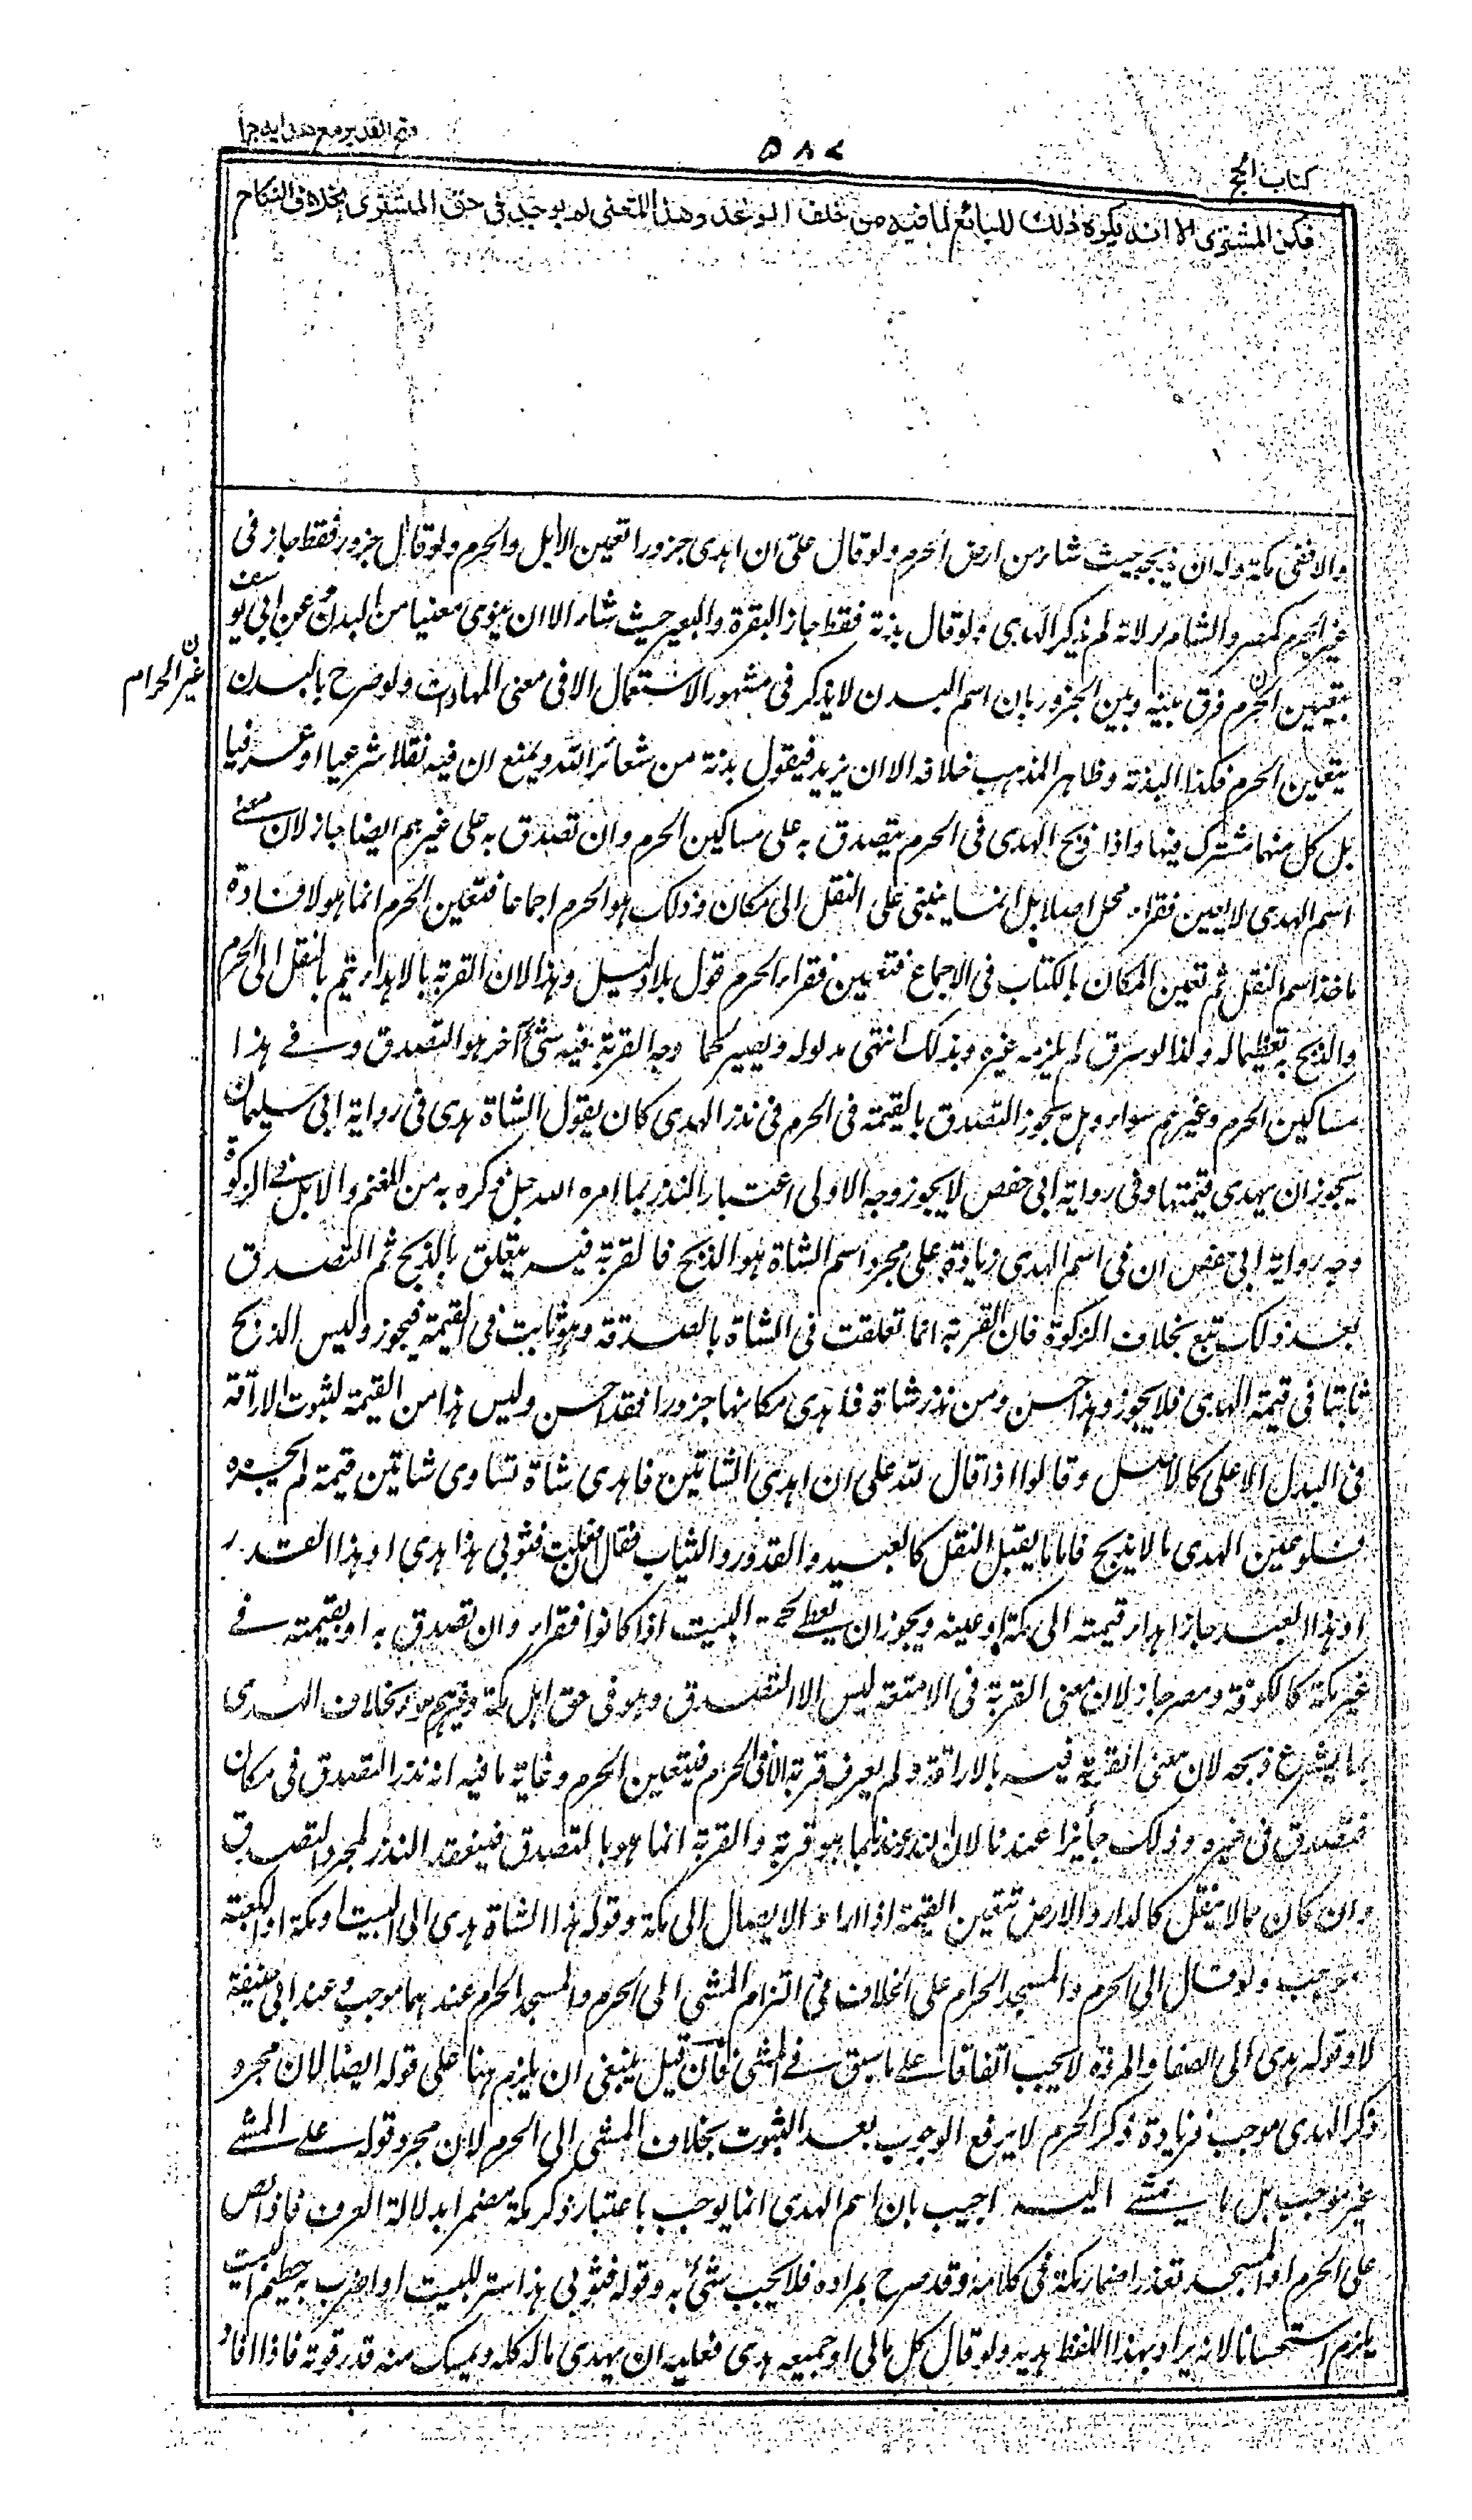 فتح القدير مع هدايه ج ١
٥٨٢
كتاب الحج
فكذا المشترى الا انه يكره ذلك للبائع لما فيه من خلف الوعد وهذا المعنى لم يوجد فى حق المشترى بخلاف النكاح
والا ففى مكة وله ان يذبحه حيث شاء من ارض الحرم ولو قال على ان اهدى جزورا تعين الابل والحرم ولو قال جزور فقط جاز فى
غير الحرم كمصر والشام لانه لم يذكر الهدى ولو قال بدنة فقط جاز البقرة والبعير حيث شاء الا ان ينوى معنيا من البدن وعن ابى يوسف
يتعين الحرم فرق بينه وبين الجزور بان اسم البدن لا يذكر فى مشهور الاستعمال الا فى معنى المهادات ولو صرح بالبدن
غير الحرام
يتعين الحرم فكذا البدنة وظاهر المذهب خلافه الا ان يزيد فيقول بدنة من شعائر الله ويمنع ان فيه نقلا شرعيا او عرفيا
بل كل منهما مشترك فيها واذا ذبح الهدى فى الحرم يتصدق به على مساكين الحرم وان تصدق به على غيرهم ايضا جاز لان معنى
اسم الهدى لا يعين فقراء محل اصلا بل انما ينبئ على النقل الى مكان وذلك هو الحرم اجماعا فتعين الحرم انما هو لافادة
ماخذ اسم النقل ثم تعين المكان بالكتاب فى الاجماع فتعيين فقراء الحرم قول بلا دليل وهذا لان القربة بالاهداء يتم بالنقل الى الحرم
والذبح به تعظيما له ولذا لو سرق لم يلزمه غيره وبذلك انتهى مدلوله ويصير لحما وجه القربة فيه شئ آخر هو التصدق وفى هذا
مساكين الحرم وغيرهم سواء وهل يجوز التصدق بالقيمة فى الحرم فى نذر الهدى كان يقول الشاة هدى فى رواية ابى سليمان
يجوز ان يهدى قيمتها وفى رواية ابى حفص لا يجوز وجه الاولى اعتبار النذر بما امره الله جل ذكره به من الغنم والابل فى الزكوة
وجه رواية ابى حفص ان فى اسم الهدى زيادة على مجرد اسم الشاة هو الذبح فالقربة فيه يتعلق بالذبح ثم التصدق
بعد ذلك تبع بخلاف الزكوة فان القربة انما تعلقت فى الشاة بالصدقة وهو ثابت فى القيمة فيجوز وليس الذبح
ثابتا فى قيمة الهدى فلا يجوز وهذا حسن ومن نذر شاة فاهدى مكانها جزورا فقد احسن وليس هذا من القيمة لثبوت الاراقة
فى البدل الاعلى كالاصل وقالوا اذا قال لله على ان اهدى الشاتين فاهدى شاة تساوى شاتين قيمة لم يجزه
فلو عين الهدى ما لا يذبح فاما ما يقبل النقل كالعبيد والقدور والثياب فقال ان فعلت فثوبى هذا هدى او هذا القدر
او هذا العبد جاز اهداء قيمته الى مكة او عينه ويجوز ان يعطى حجبة البيت اذا كانوا فقراء وان تصدق به او بقيمته فى
غير مكة كالكوفة ومصر جاز لان معنى القربة فى الامتعة ليس الا التصدق وهو فى حق اهل مكة وغيرهم سواء بخلاف الهدى
بما يشرع ذبحه لان معنى القربة فيه بالاراقة ولم يعرف قربة الا فى الحرم فيتعين الحرم وغاية ما فيه انه نذر التصدق فى مكان
فتصدق فى غيره وذلك جائز عندنا لان النذر عندنا بما هو قربة والقربة انما هو بالتصدق فينعقد النذر لمجرد التصدق
وان كان مما لا ينقل كالدار والارض تتعين القيمة اذا اراد الايصال الى مكة وقوله هذا الشاة هدى الى البيت او مكة او الكعبة
موجب ولو قال الى الحرم والمسجد الحرام على الخلاف فى التزام المشى الى الحرم والمسجد الحرام عندهما موجب وعند ابى حنيفة
لا وقوله هدى الى الصفا والمروة لا يجب اتفاقا على ما سبق فى المشى فان قيل ينبغى ان يلزم هنا على قوله ايضا لان مجرد
ذكر الهدى موجب فزيادة ذكر الحرم لا يرفع الوجوب بعد الثبوت بخلاف المشى الى الحرم لان مجرد قوله على المشى
غير موجب بل ما يمشى اليه اجيب بان اسم الهدى انما يوجب باعتبار ذكر مكة مضمرا بدلالة العرف فاذا نص
على الحرم او المسجد تعذر اضمار مكة فى كلامه وقد صرح بمراده فلا يجب شئ به وقوله فثوبى هذا ستر للبيت او اضرب به حطيم البيت
يلزم استحسانا لانه يراد بهذا اللفظ هديه ولو قال كل مالى او جميعه هدى فعليه ان يهدى ماله كله ويمسك منه قدر قوته فاذا افاد